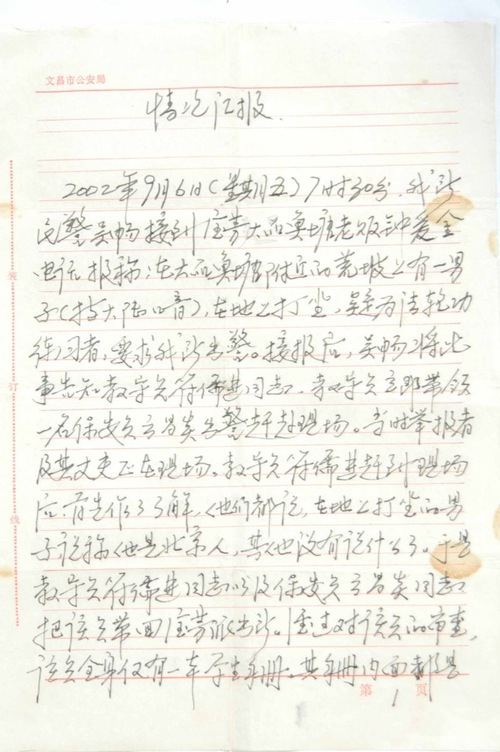 文昌市公安局
情况汇报.
2002年9月6日(星期五)7时30分,我所
民警吴畅接到宝芳大品鱼塘老板钟爱金
电话报称:在大品鱼塘附近的荒坡上有一男
子(持大陆口音),在地上打坐,疑为法轮功
练习者,要求我所出警。接报后,吴畅将此
事告知教导员符儒进同志,教导员立即带领
一名保安员云昌炎出警赶赴现场。当时举报者
及其丈夫正在现场。教导员符儒进赶到现场
后,首先作了了解,他们都说,在地上打坐的男
子说称他是北京人,其他没有说什么了。于是
教导员符儒进同志以及保安员云昌炎同志
把该员带回宝芳派出所。经过对该员的审查,
该员全身仅有一本学生手册。其手册内面都是
装
订
线
第 1 页